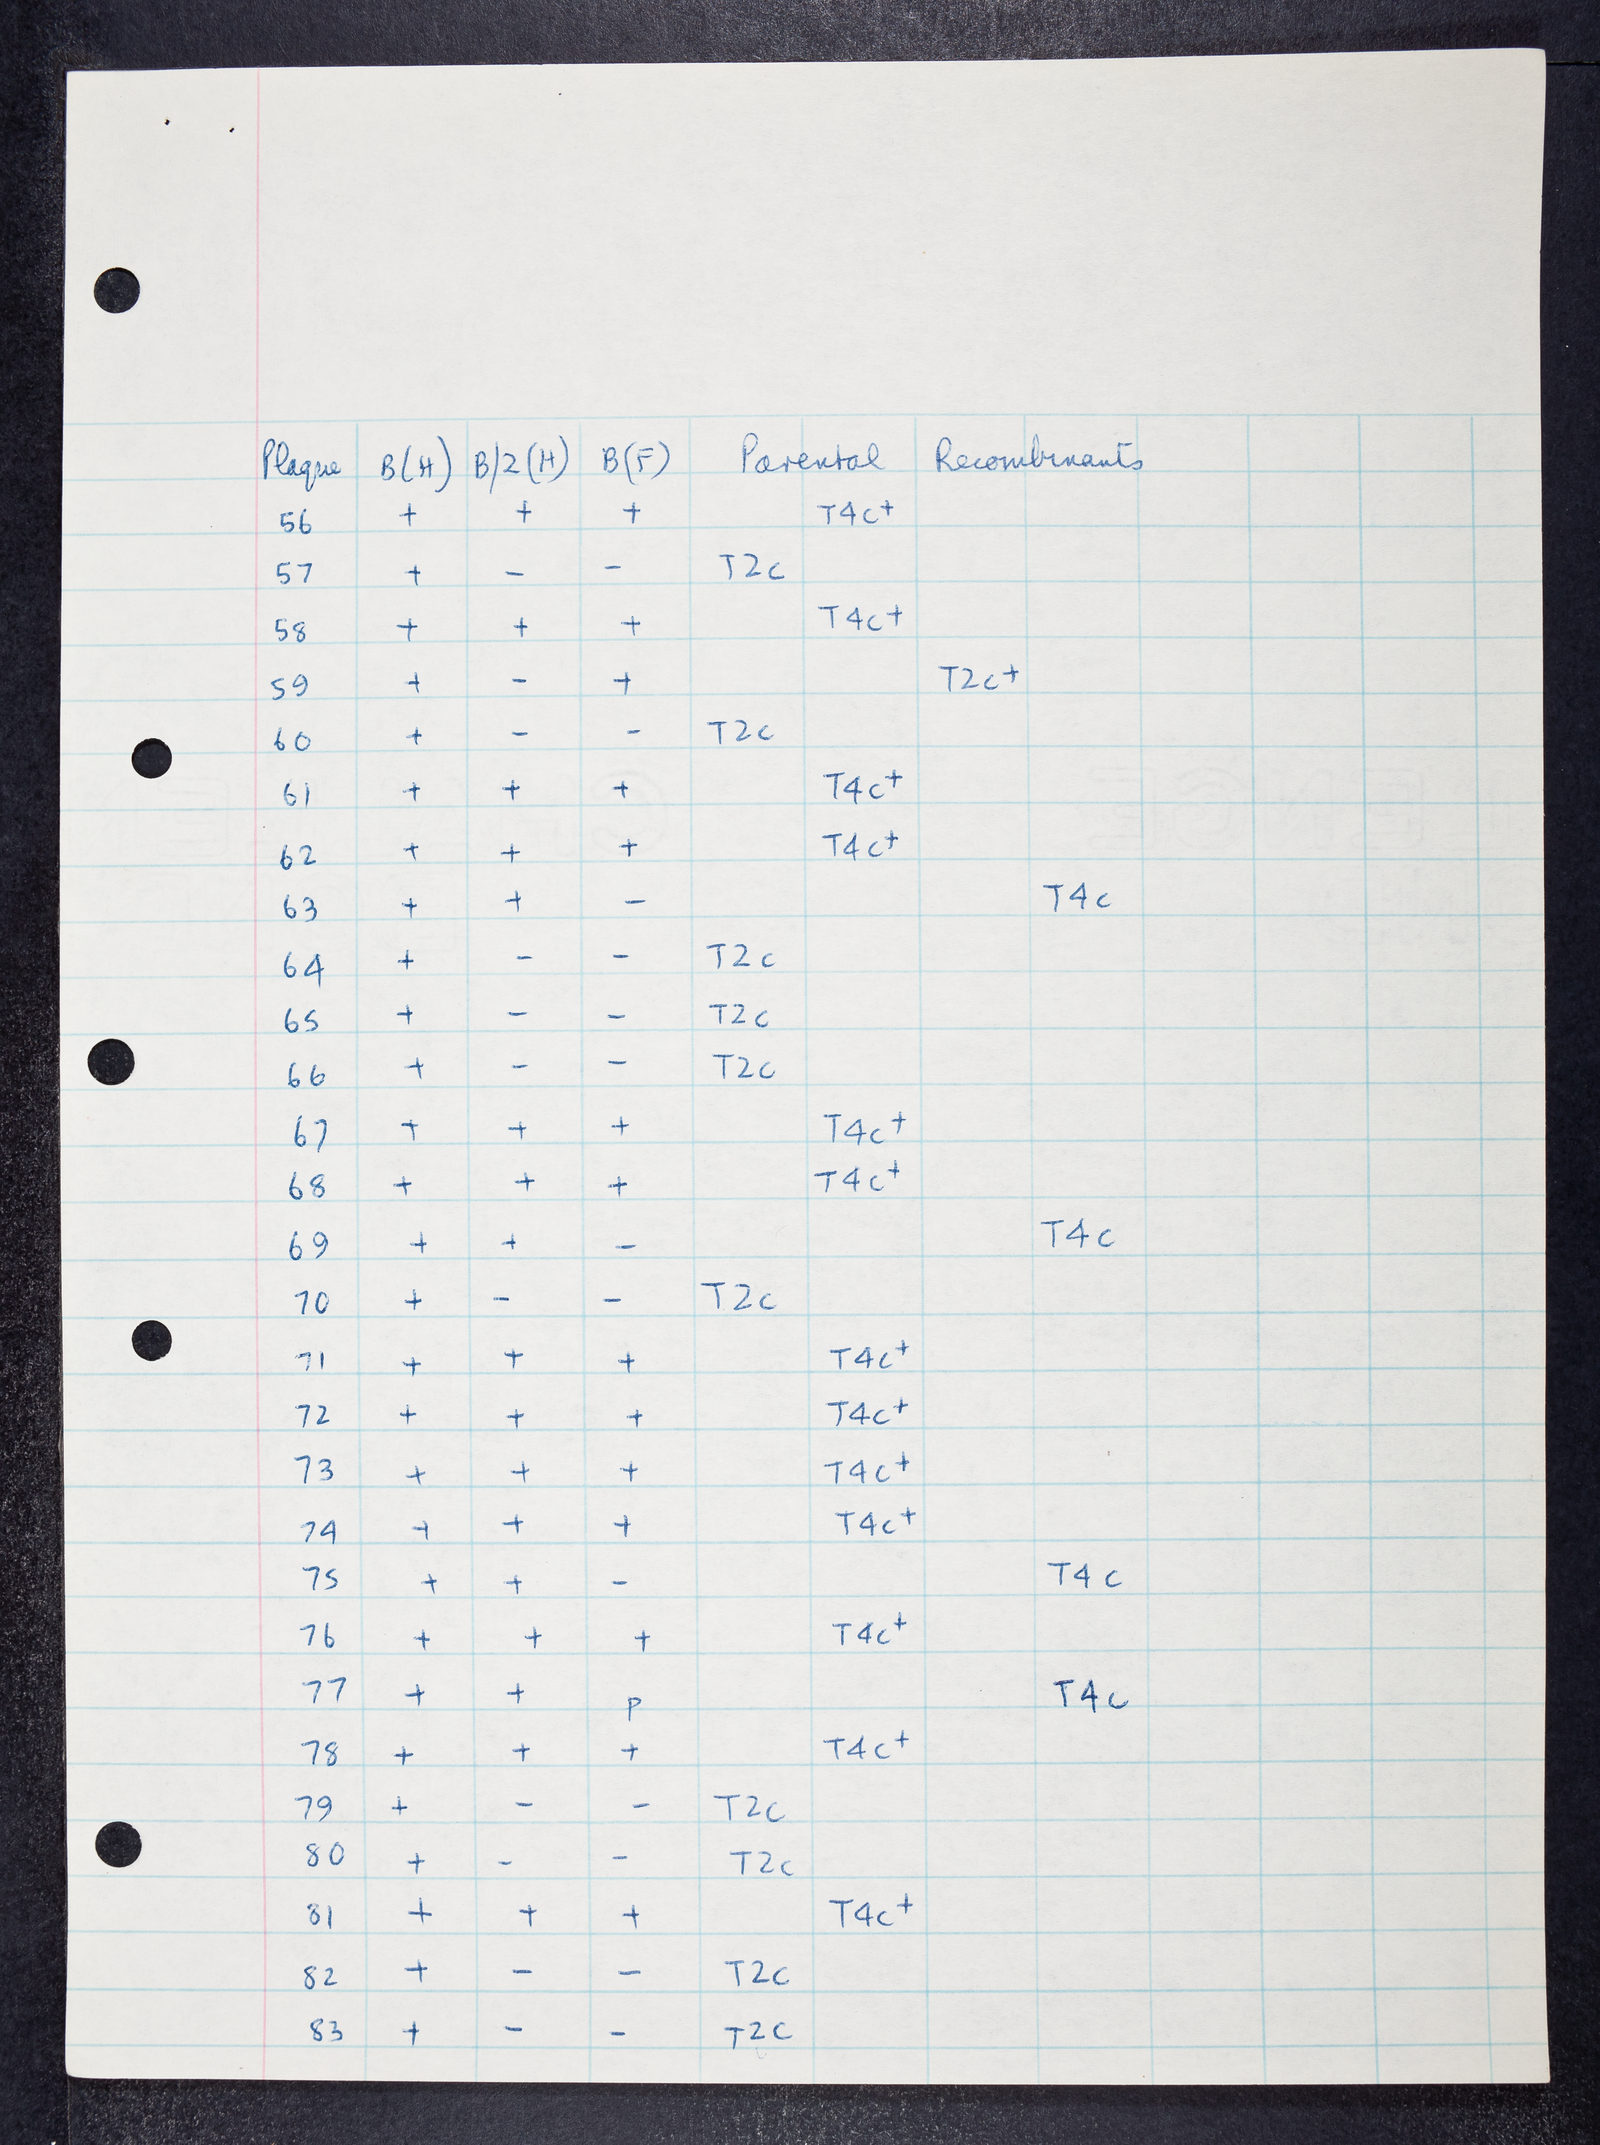 Plaque B(H) B/2(H) B(F) Parental Recombinants
56 + + + T4c+
57 + - - T2c
58 + + + T4c+
59 + - + T2c+
60 + - - T2c
61 + + + T4c+
62 + + + T4c+
63 + + - T4c
64 + - - T2c
65 + - - T2c
66 + - - T2c
67 + + + T4c+
68 + + + T4c+
69 + + - T4c
70 + - - T2c
71 + + + T4c+
72 + + + T4c+
73 + + + T4c+
74 + + + T4c+
75 + + - T4c
76 + + + T4c+
77 + + p T4c
78 + + + T4c+
79 + - - T2c
80 + - - T2c
81 + + + T4c+
82 + - - T2c
83 + - - T2c